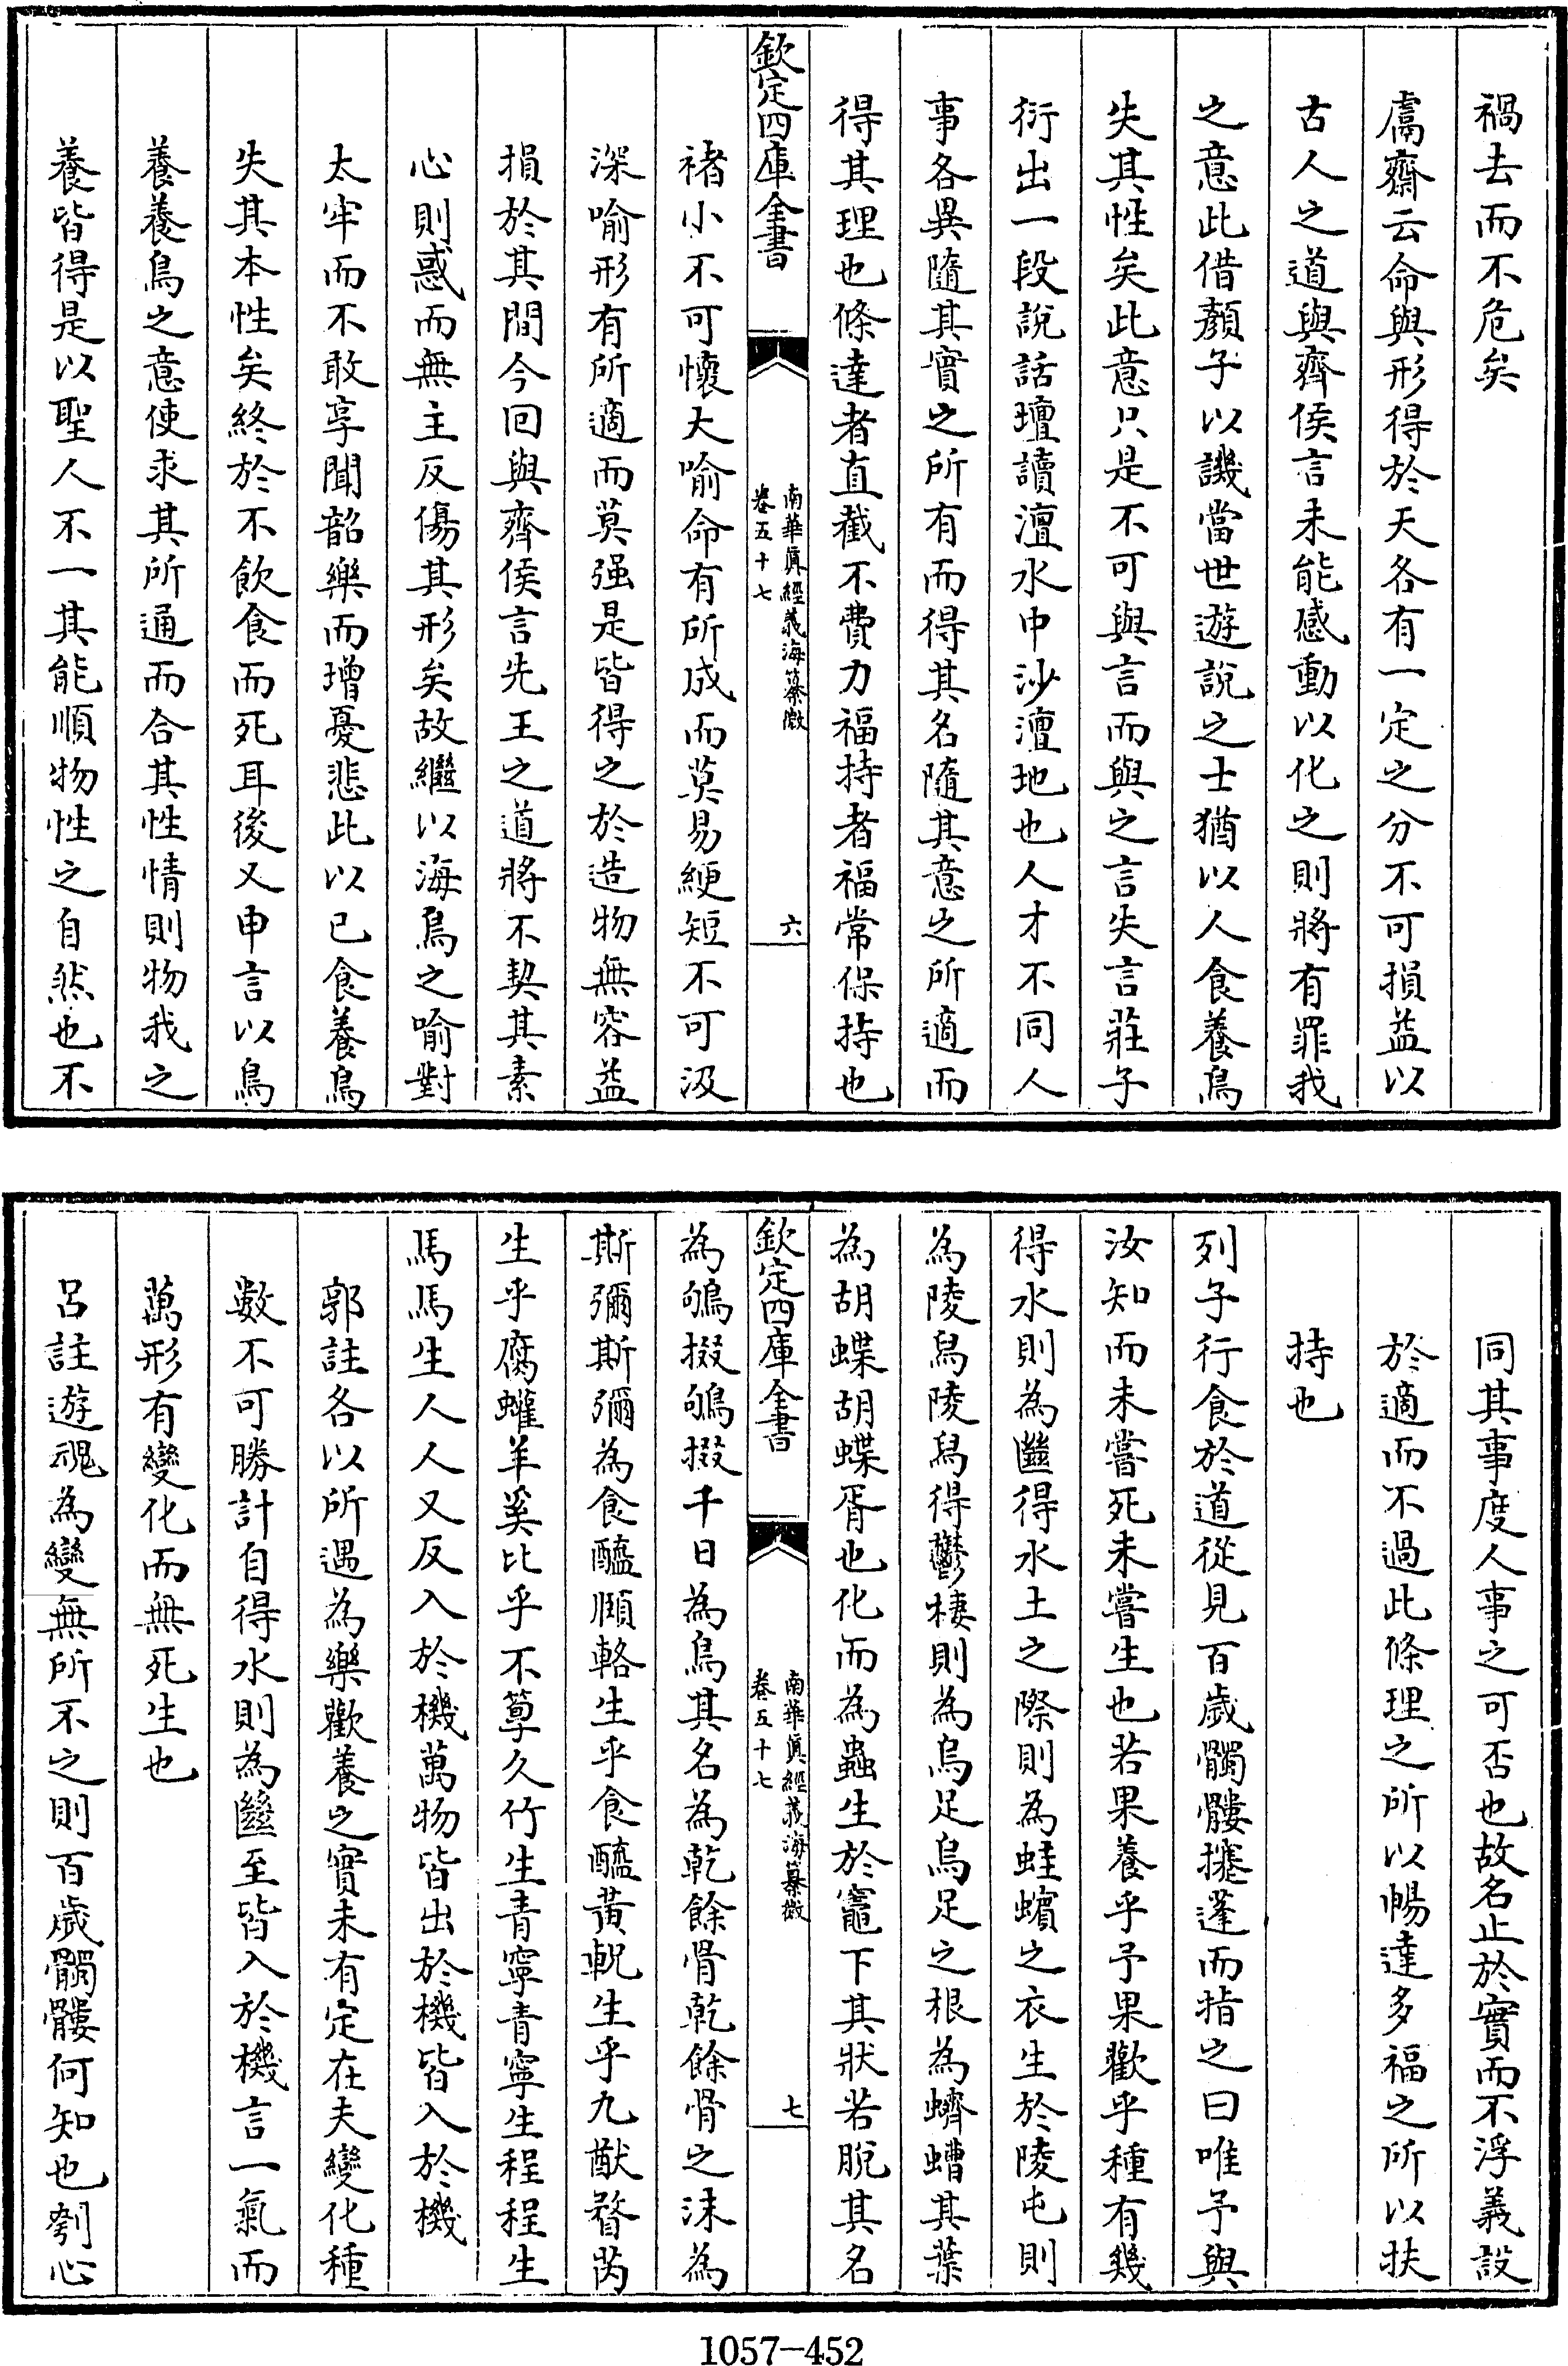 禍去而不危矣
鬳齋云命與形得於天各有一定之分不可損益以
古人之道與齊侯言未能感動以化之則將有罪我
之意此借顏子以譏當世遊說之士猶以人食養鳥
失其性矣此意只是不可與言而與之言失言莊子
衍出一段說話壇讀澶水中沙澶地也人才不同人
事各異隨其實之所有而得其名隨其意之所適而
得其理也條達者直截不費力福持者福常保持也
欽定四庫全書
南華真經義海纂微
卷五十七
六
褚小不可懷大喻命有所成而莫易綆短不可汲
深喻形有所適而莫强是皆得之於造物無容益
損於其間今回與齊侯言先王之道將不契其素
心則惑而無主反傷其形矣故繼以海鳥之喻對
太牢而不敢享聞韶樂而增憂悲此以己食養鳥
失其本性矣終於不飲食而死耳後又申言以鳥
養養鳥之意使求其所通而合其性情則物我之
養皆得是以聖人不一其能順物性之自然也不
同其事度人事之可否也故名止於實而不浮義設
於適而不過此條理之所以暢達多福之所以扶
持也
列子行食於道從見百歲髑髏攓蓬而指之曰唯予與
汝知而未嘗死未嘗生也若果養乎予果歡乎種有幾
得水則為㡭得水土之際則為蛙蠙之衣生於陵屯則
為陵舄陵舄得鬱棲則為烏足烏足之根為蠐螬其葉
為胡蝶胡蝶胥也化而為蟲生於竈下其狀若脫其名
欽定四庫全書
南華真經義海纂微
卷五十七
七
為鴝掇鴝掇千日為鳥其名為乾餘骨乾餘骨之沬為
斯彌斯彌為食醯頤輅生乎食醯黃軦生乎九猷瞀芮
生乎腐蠸羊奚比乎不箰久竹生青寧青寧生程程生
馬馬生人人又反入於機萬物皆出於機皆入於機
郭註各以所遇為樂歡養之實未有定在夫變化種
數不可勝計自得水則為㡭至皆入於機言一氣而
萬形有變化而無死生也
呂註遊魂為變無所不之則百歲髑髏何知也刳心
1057-452